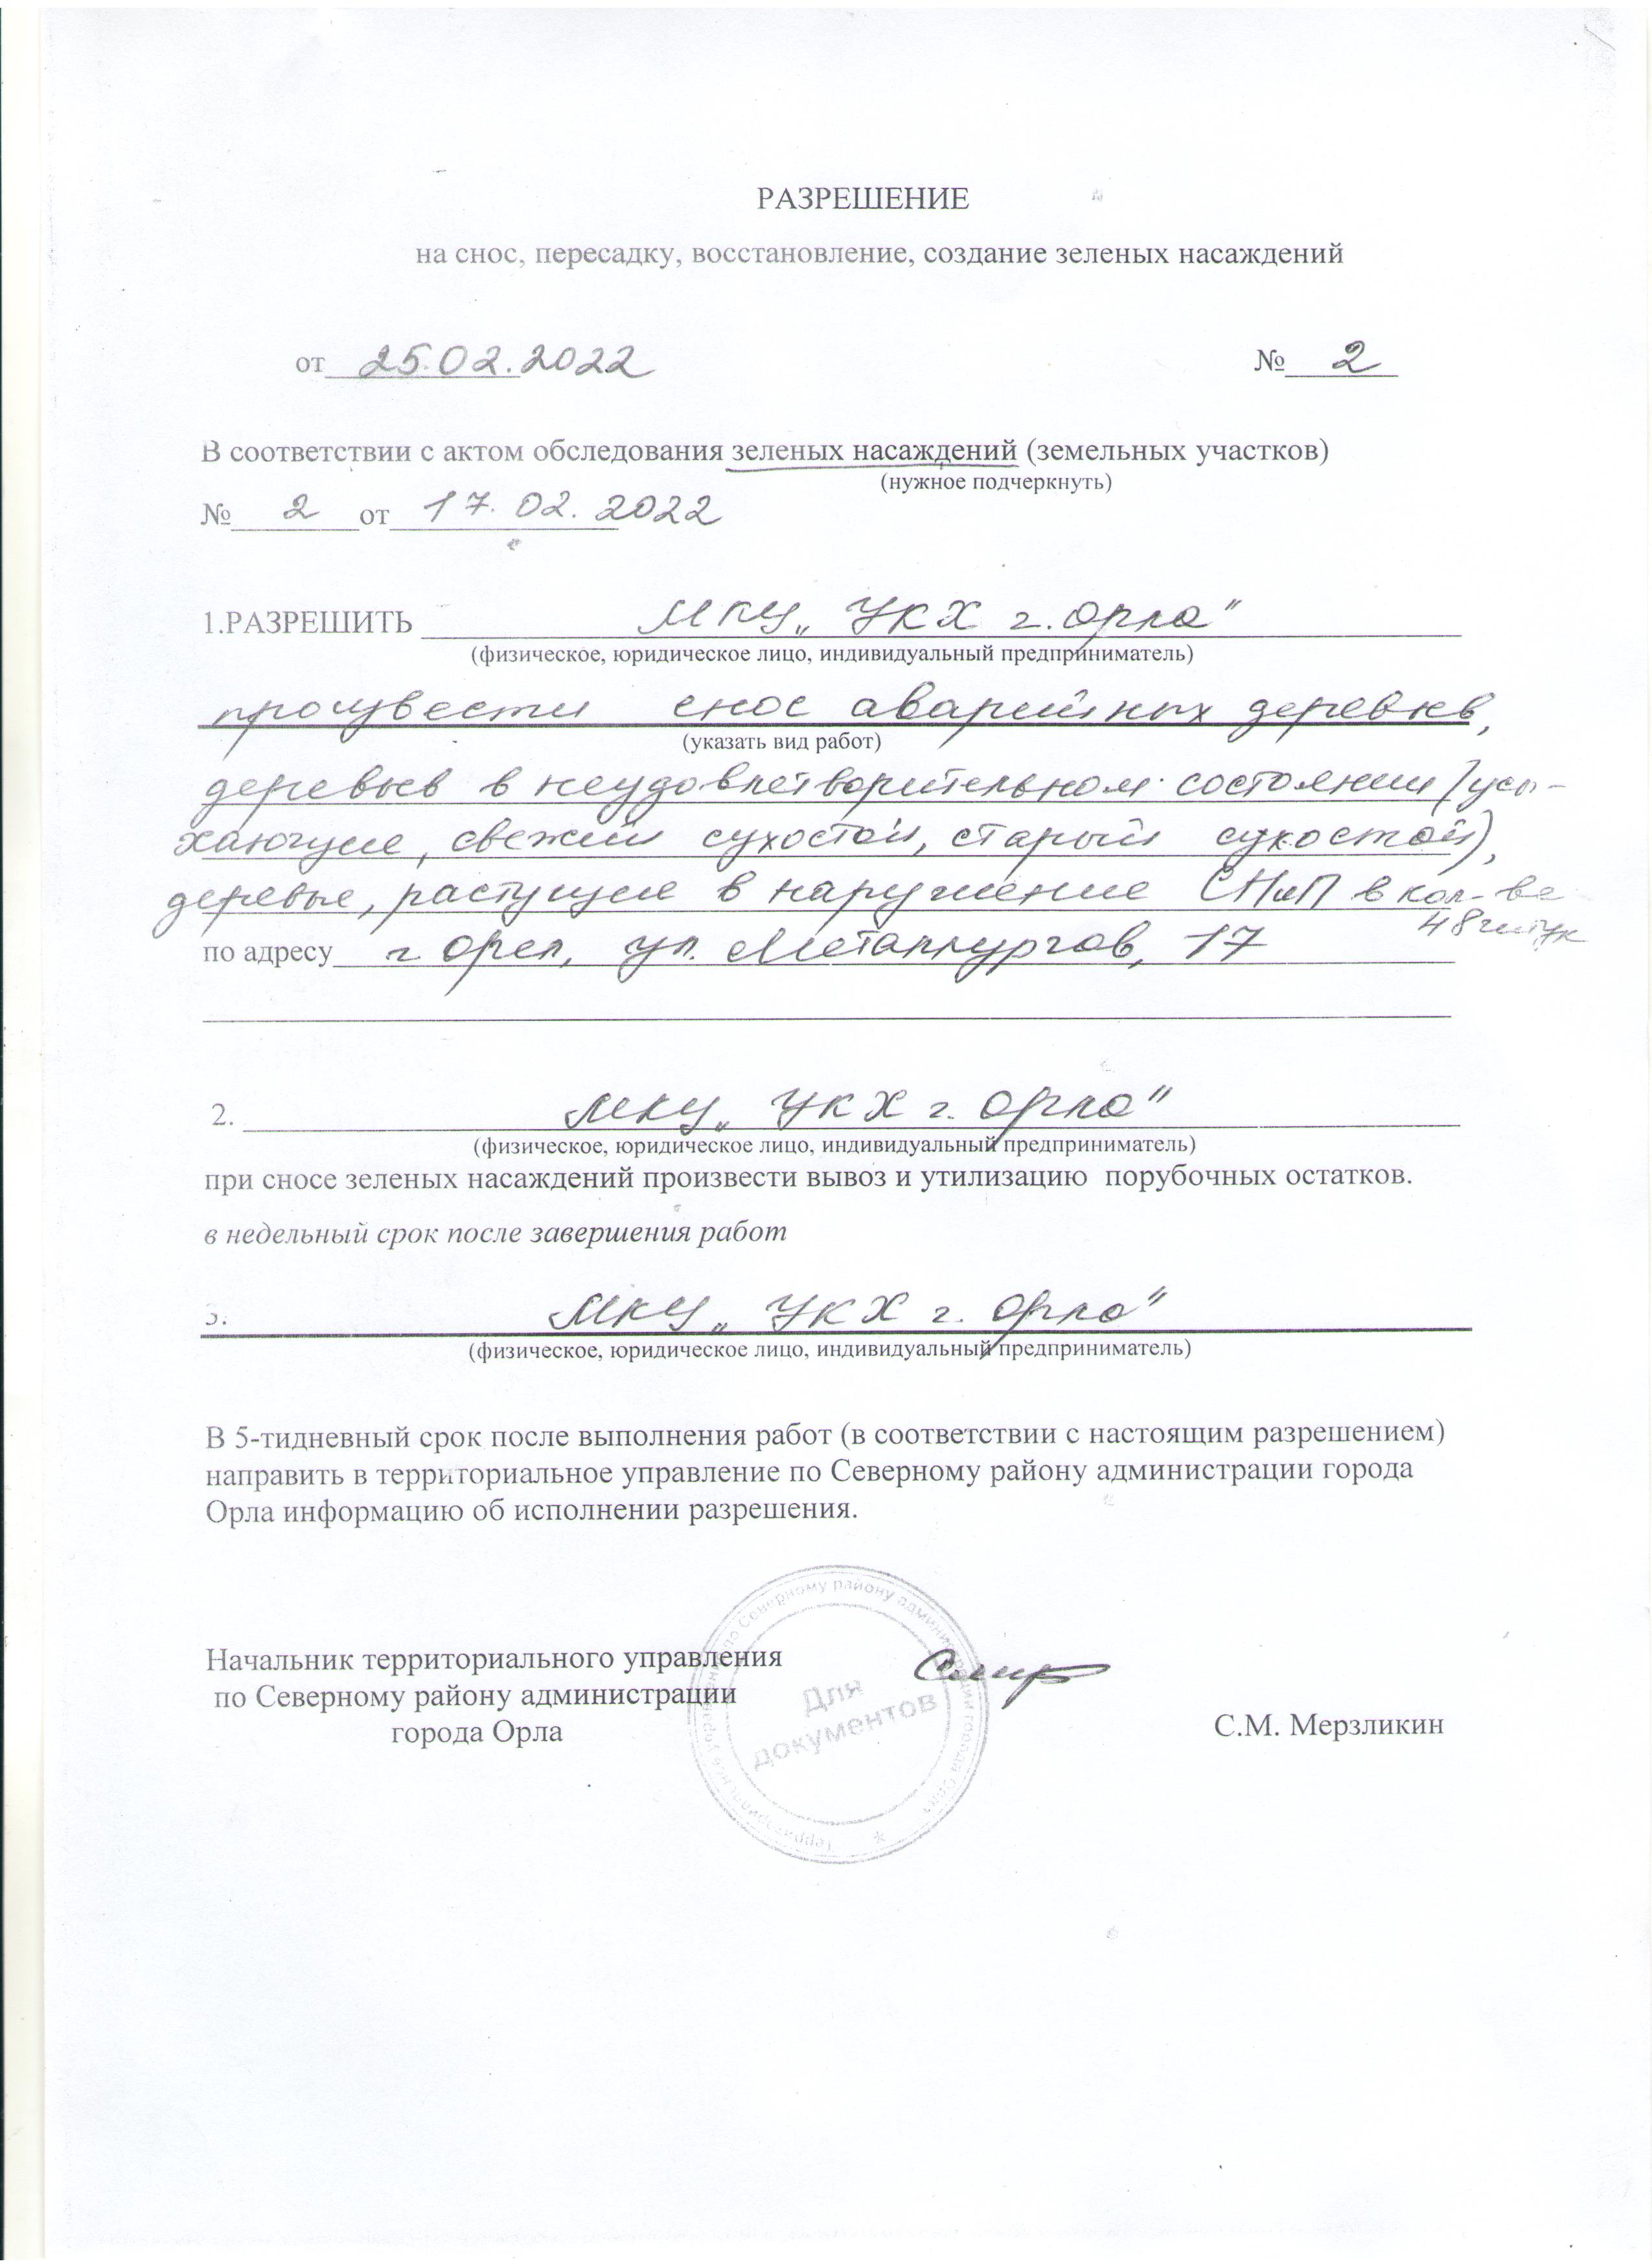 РАЗРЕШЕНИЕ
на снос, пересадку, восстановление, создание зеленых насаждений
от 25.02.2022 № 2
В соответствии с актом обследования зеленых насаждений (земельных участков)
(нужное подчеркнуть)
№ 2 от 17.02.2022
1.РАЗРЕШИТЬ МКУ „УКХ г. Орла"
(физическое, юридическое лицо, индивидуальный предприниматель)
произвести снос аварийных деревьев,
(указать вид работ)
деревьев в неудовлетворительном состоянии (усы-
хающие, свежий сухостой, старый сухостой),
деревье, растущие в нарушение СНиП в кол-ве
48 штук
по адресу г. Орел, ул. Металлургов, 17
2. МКУ „УКХ г. Орла"
(физическое, юридическое лицо, индивидуальный предприниматель)
при сносе зеленых насаждений произвести вывоз и утилизацию порубочных остатков.
в недельный срок после завершения работ
3. МКУ „УКХ г. Орла"
(физическое, юридическое лицо, индивидуальный предприниматель)
В 5-тидневный срок после выполнения работ (в соответствии с настоящим разрешением)
направить в территориальное управление по Северному району администрации города
Орла информацию об исполнении разрешения.
Начальник территориального управления
по Северному району администрации
города Орла
С.М. Мерзликин
Территориальное управление по Северному району администрации города Орла *
Для
документов